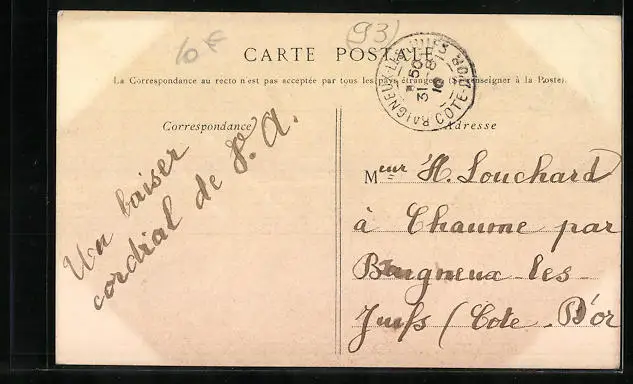 10 €
(93)
CARTE POSTALE
La Correspondance au recto n'est pas acceptée par tous les pays étrangers (Se renseigner à la Poste).
BAIGNEUX-LES-JUIFS
COTE-D'OR
50
31 - 8
10
Correspondance
Un baiser
cordial de
Adresse
Meur H. Louchard
à Chaume par
Baigneux-les-
Juifs (Cote-D'or